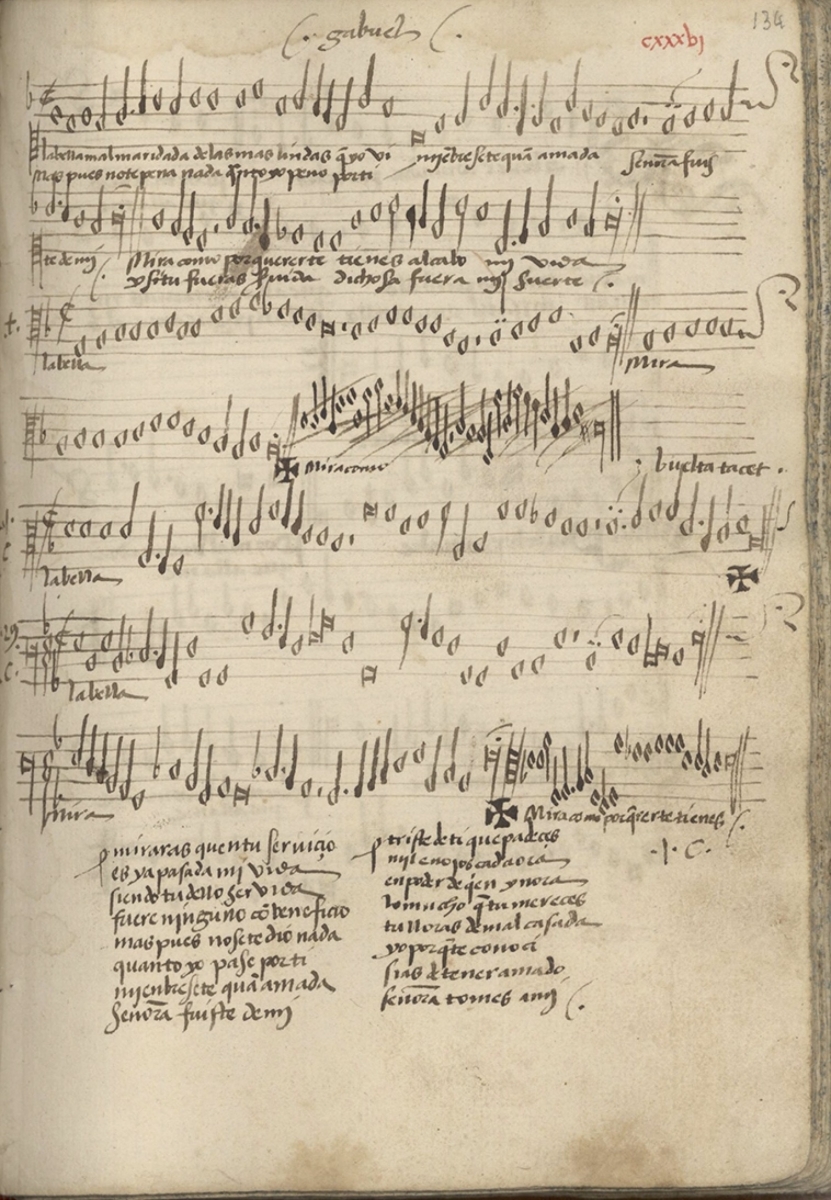 (. gabriel (.
cxxxvj
134
labella mal maridada de las mas lindas q̃ yo vi mjenbresete quã amada señora fuys
Mas pues note pena nada q̃nto yo peno porti
te de mj Mira como por quererte tienes al cabo mj vida
y si tu fueras seruida dichosa fuera mj suerte
labella Mira
Mira como buelta tacet .
labella
labella
mira Mira como porq̃rerte tienes
miraras quen tu seruicio
es ya pasada mi vida
siendo tu dello seruida
fuere ninguno cõ beneficio
mas pues no sete dio nada
quanto yo pase por ti
mjenbresete quã amada
señora fuiste de mj
triste de ti que padeces
mil enojos cada ora
en poder de q̃en ynora
lo mucho q̃ tu mereces
tu lloras de mal casada
yo porq̃ te conoci
sias de tener amado
señora tomes a mj